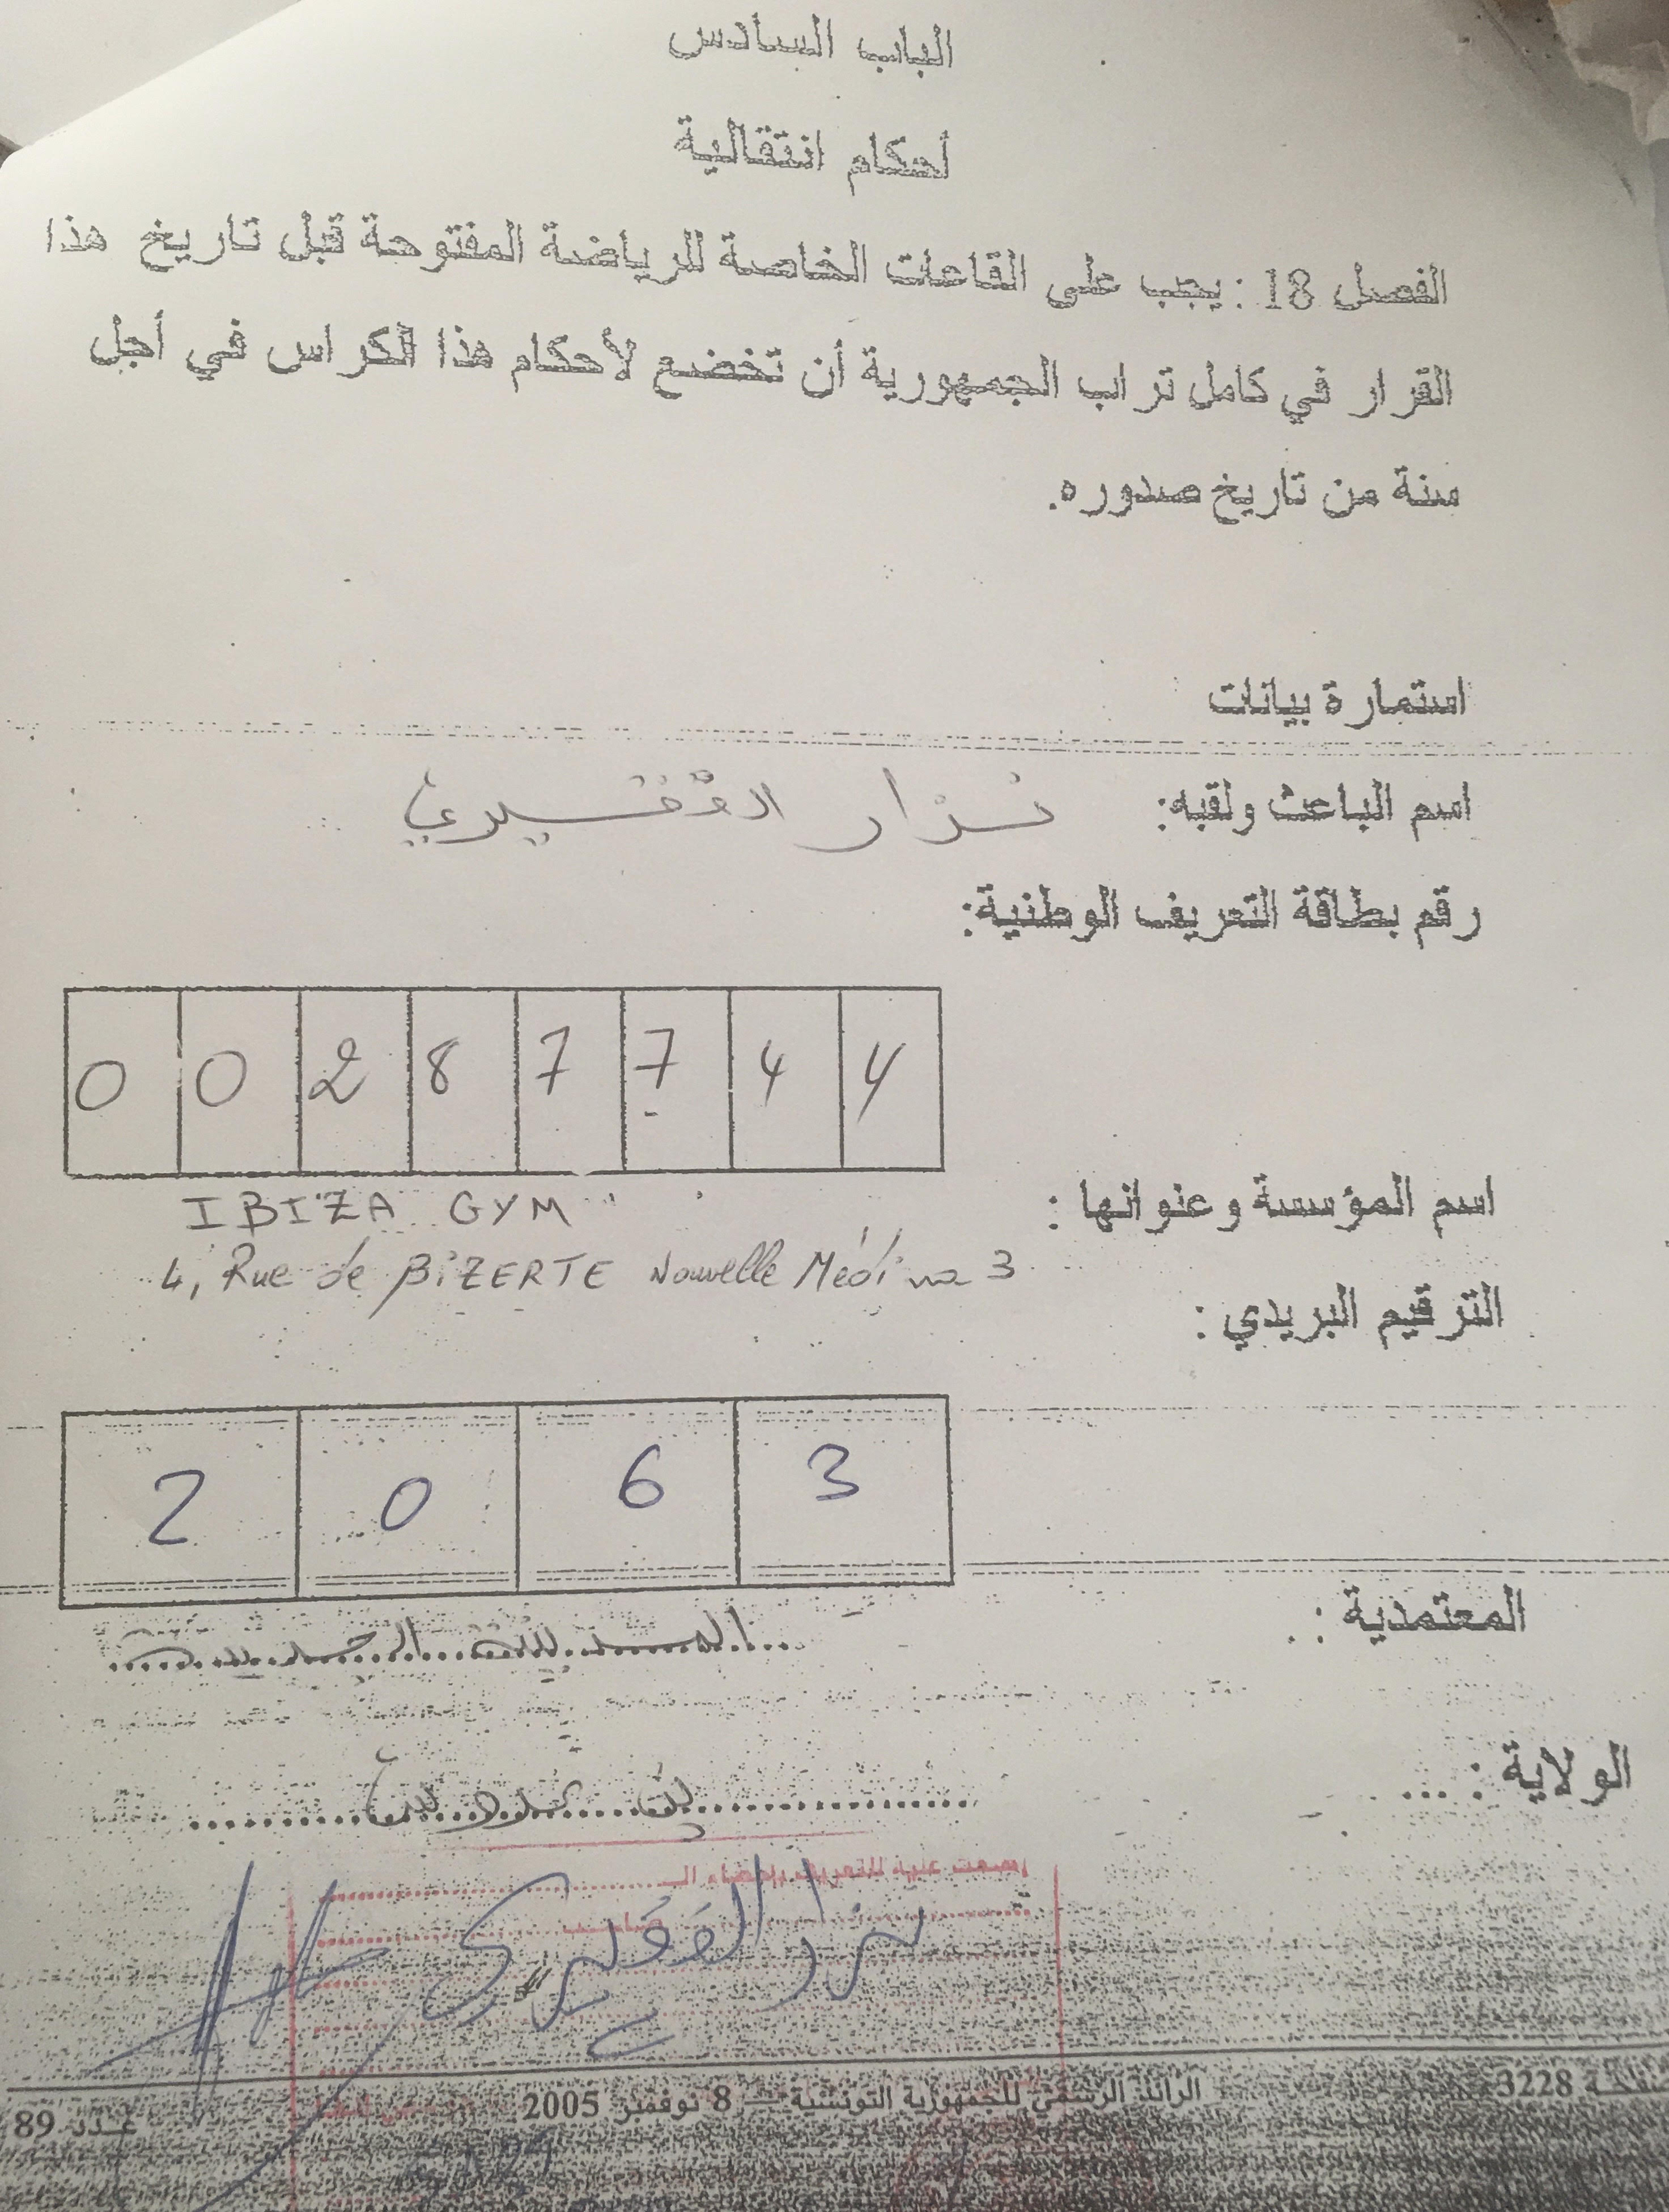 الباب السادس
أحكام انتقالية
الفصل 18 : يجب على القاعات الخاصة للرياضة المفتوحة قبل تاريخ هذا
القرار في كامل تراب الجمهورية أن تخضع لأحكام هذا الكراس في أجل
سنة من تاريخ صدوره.
استمارة بيانات
اسم الباعث ولقبه: نزار
رقم بطاقة التعريف الوطنية:
0 0 2 8 7 7 4 4
اسم المؤسسة وعنوانها :
IBIZA GYM
4, Rue de BIZERTE Nouvelle Médina 3
الترقيم البريدي :
2 0 6 3
المعتمدية : المدينة الجديدة
الولاية : ... بن عروس
نزار
صفحة 3228 الرائد الرسمي للجمهورية التونسية — 8 نوفمبر 2005 عدد 89